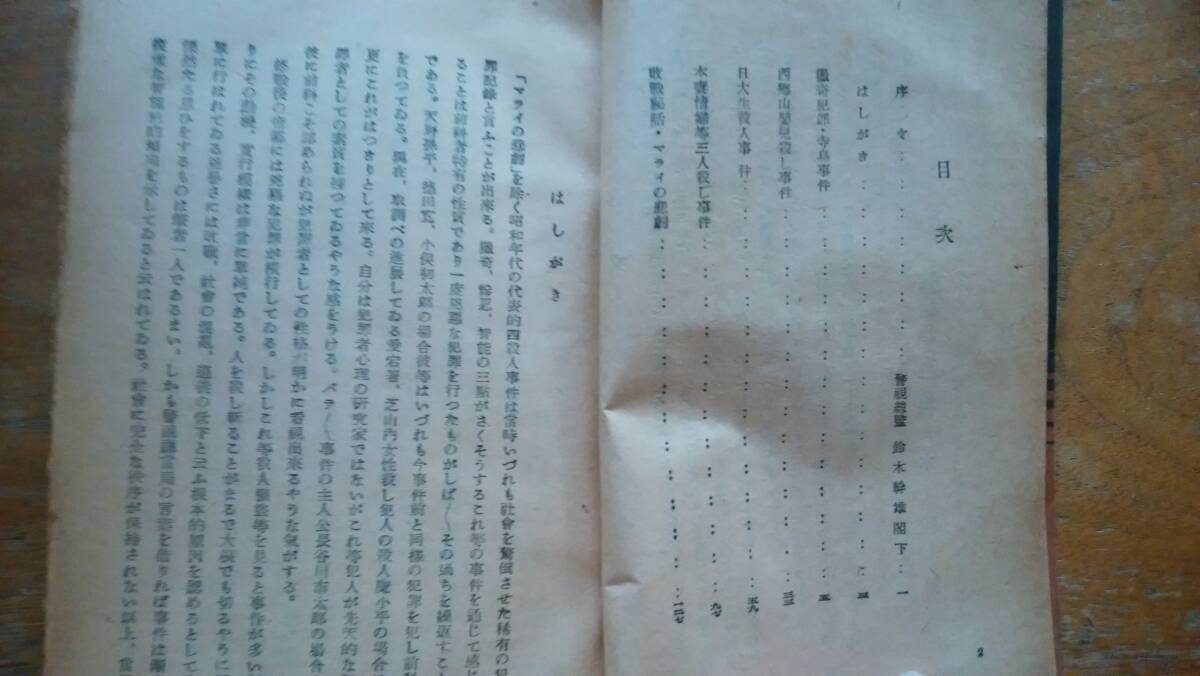 目次
序文‥‥‥‥‥‥警視総監 鈴木幹雄閣下‥一
はしがき‥‥‥‥‥‥三
獵奇犯罪・寺島事件‥‥‥‥‥‥五
西郷山嬰兒殺し事件‥‥‥‥‥‥三三
日大生殺人事件‥‥‥‥‥‥五九
本妻情婦等三人殺し事件‥‥‥‥‥‥九七
敗戰秘話・マライの悲劇‥‥‥‥‥‥一二七
2
はしがき
「マライの悲劇」を除く昭和年代の代表的四殺人事件は當時いづれも社會を驚倒させた稀有の犯
罪記錄と言ふことが出來る。獵奇、慘忍、智能の三點がさくそうするこれ等の事件を通じて感じ
ることは前科者特有の性質であり一度兇惡な犯罪を行つたものがしば〱その過ちを繰返すこと
である。天野 平、德田 、小俣初太郎の場合彼等はいづれも今事件前と同樣の犯罪を犯し前科
を負つてゐる。現在、取調べの進展してゐる愛宕署、芝山內女性殺し犯人の殺人魔小平の場合
更にこれがはつきりとして來る。自分は犯罪者心理の研究家ではないがこれ等犯人が先天的な犯
罪者としての素質を持つてゐるやうな感をうける。バラ〱事件の主人公長谷川市太郎の場合
彼に前科こそ認められぬが犯罪者としての性格が明かに看視出來るやうな氣がする。
終戰後の帝都には兇惡な犯罪が橫行してゐる。しかしこれ等殺人强盜等を見ると事件が多い
りにその動機、實行模樣は非常に單純である。人を殺し斬ることがまるで大根でも切るやうに
單に行はれてゐる恐ろしさには敗戰、社會の混亂、道義の低下と云ふ根本的原因を認めるとして
慄然たる思ひをするものは筆者一人であるまい。しかも警視廳當局の言葉を借りれば事件は漸
複雜な智能犯的傾向を示してゐると云はれてゐる。社會に完全な秩序が保持されない以上、當